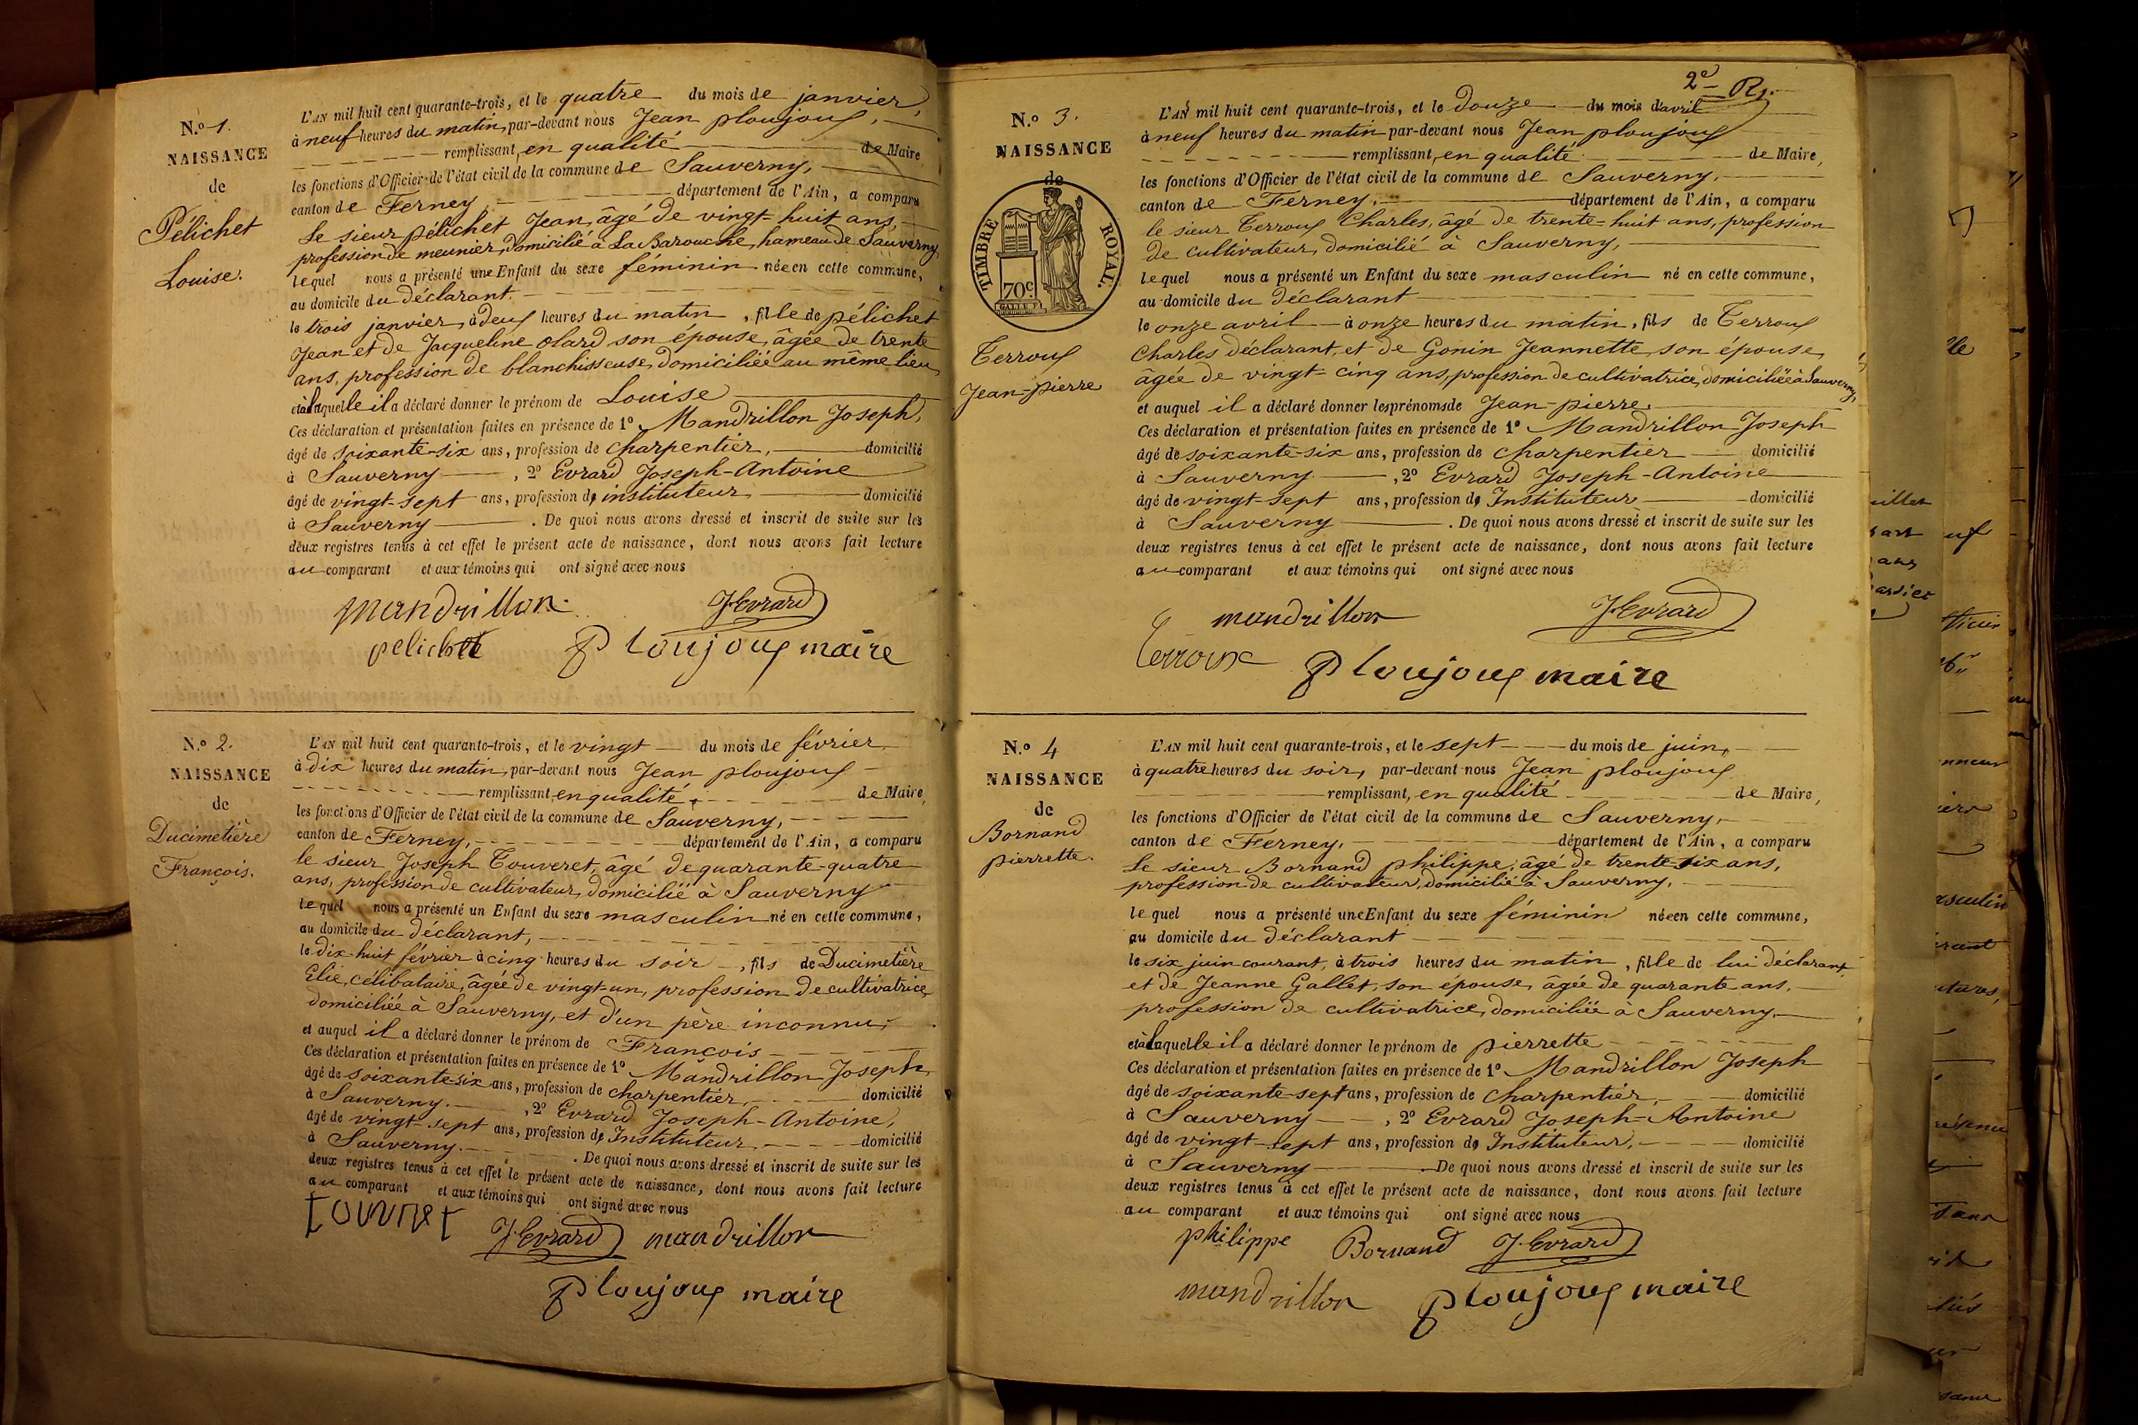 N.º 1.
NAISSANCE
de
Pélichet
Louise.
L'AN mil huit cent quarante-trois, et le quatre du mois de janvier,
à neuf heures du matin, par-devant nous Jean ploujoux,
remplissant, en qualité de Maire
les fonctions d'Officier de l'état civil de la commune de Sauverny,
canton de Ferney, département de l'Ain, a comparu
Le sieur pélichet Jean, âgé de vingt-huit ans,
profession de meunier, domicilié à La Barouche, hameau de Sauverny,
lequel nous a présenté une Enfant du sexe féminin née en cette commune,
au domicile du déclarant.
le trois janvier, à deux heures du matin, fille de pélichet
Jean et de Jacqueline Olard son épouse, âgée de trente
ans, profession de blanchisseuse, domiciliée au même lieu,
et à laquelle il a déclaré donner le prénom de Louise
Ces déclaration et présentation faites en présence de 1º Mandrillon Joseph,
âgé de soixante-six ans, profession de charpentier, domicilié
à Sauverny, 2º Evrard Joseph-Antoine
âgé de vingt-sept ans, profession d' instituteur domicilié
à Sauverny. De quoi nous avons dressé et inscrit de suite sur les
deux registres tenus à cet effet le présent acte de naissance, dont nous avons fait lecture
au comparant et aux témoins qui ont signé avec nous
mandrillon J. Evrard
pelichet Ploujoux maire
N.º 2.
NAISSANCE
de
Ducimetière
François.
L'AN mil huit cent quarante-trois, et le vingt du mois de février
à dix heures du matin, par-devant nous Jean ploujoux
remplissant, en qualité, de Maire,
les fonctions d'Officier de l'état civil de la commune de Sauverny,
canton de Ferney, département de l'Ain, a comparu
le sieur Joseph Touveret, âgé de quarante-quatre
ans, profession de cultivateur, domicilié à Sauverny
lequel nous a présenté un Enfant du sexe masculin né en cette commune,
au domicile du déclarant,
le dix-huit février à cinq heures du soir, fils de Ducimetière
Elie, célibataire, âgée de vingt-un, profession de cultivatrice,
domiciliée à Sauverny, et d'un père inconnu,
et auquel il a déclaré donner le prénom de François
Ces déclaration et présentation faites en présence de 1º Mandrillon Joseph,
âgé de soixante-six ans, profession de charpentier, domicilié
à Sauverny. , 2º Evrard Joseph-Antoine,
âgé de vingt-sept ans, profession d' Instituteur domicilié
à Sauverny. . De quoi nous avons dressé et inscrit de suite sur les
deux registres tenus à cet effet le présent acte de naissance, dont nous avons fait lecture
au comparant et aux témoins qui ont signé avec nous
J. Evrard mandrillon
Ploujoux maire
2e R.
N.º 3.
NAISSANCE
de
TIMBRE ROYAL.
70c
Terroux
Jean-pierre
L'AN mil huit cent quarante-trois, et le douze du mois d'avril
à neuf heures du matin par-devant nous Jean ploujoux
remplissant, en qualité de Maire,
les fonctions d'Officier de l'état civil de la commune de Sauverny,
canton de Ferney, département de l'Ain, a comparu
le sieur Terroux Charles, âgé de trente-huit ans, profession
de cultivateur, domicilié à Sauverny,
lequel nous a présenté un Enfant du sexe masculin né en cette commune,
au domicile du déclarant
le onze avril à onze heures du matin, fils de Terroux
Charles déclarant, et de Gonin Jeannette, son épouse,
âgée de vingt-cinq ans, profession de cultivatrice, domiciliée à Sauverny,
et auquel il a déclaré donner les prénoms de Jean-pierre.
Ces déclaration et présentation faites en présence de 1º Mandrillon Joseph
âgé de soixante-six ans, profession de charpentier domicilié
à Sauverny, 2º Evrard Joseph-Antoine
âgé de vingt-sept ans, profession d' Instituteur domicilié
à Sauverny. De quoi nous avons dressé et inscrit de suite sur les
deux registres tenus à cet effet le présent acte de naissance, dont nous avons fait lecture
au comparant et aux témoins qui ont signé avec nous
mandrillon J. Evrard
Terroux Ploujoux maire
N.º 4
NAISSANCE
de
Bornand
pierrette.
L'AN mil huit cent quarante-trois, et le sept du mois de juin,
à quatre heures du soir, par-devant nous Jean ploujoux
remplissant, en qualité de Maire,
les fonctions d'Officier de l'état civil de la commune de Sauverny,
canton de Ferney, département de l'Ain, a comparu
Le sieur Bornand philippe, âgé de trente-six ans,
profession de cultivateur, domicilié à Sauverny,
lequel nous a présenté une Enfant du sexe féminin née en cette commune,
au domicile du déclarant
le six juin courant, à trois heures du matin, fille de lui déclarant,
et de Jeanne Gallet, son épouse, âgée de quarante ans,
profession de cultivatrice, domiciliée à Sauverny,
et à laquelle il a déclaré donner le prénom de pierrette
Ces déclaration et présentation faites en présence de 1º Mandrillon Joseph
âgé de soixante-sept ans, profession de charpentier, domicilié
à Sauverny, 2º Evrard Joseph-Antoine
âgé de vingt-sept ans, profession d' Instituteur, domicilié
à Sauverny. De quoi nous avons dressé et inscrit de suite sur les
deux registres tenus à cet effet le présent acte de naissance, dont nous avons fait lecture
au comparant et aux témoins qui ont signé avec nous
philippe Bornand J. Evrard
mandrillon Ploujoux maire